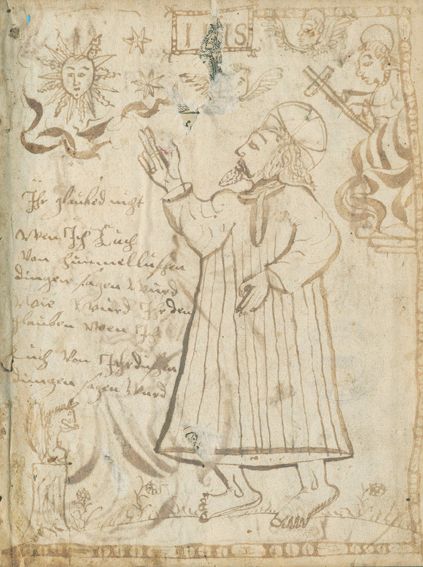 IHS
Ihr glaubed nicht
Wen Ich Euch
von himmellischen
dingen sagen wurd
wie wurd Ihr den
glauben wen Ich
Euch von Ihrdischen
dingen sagen wurd